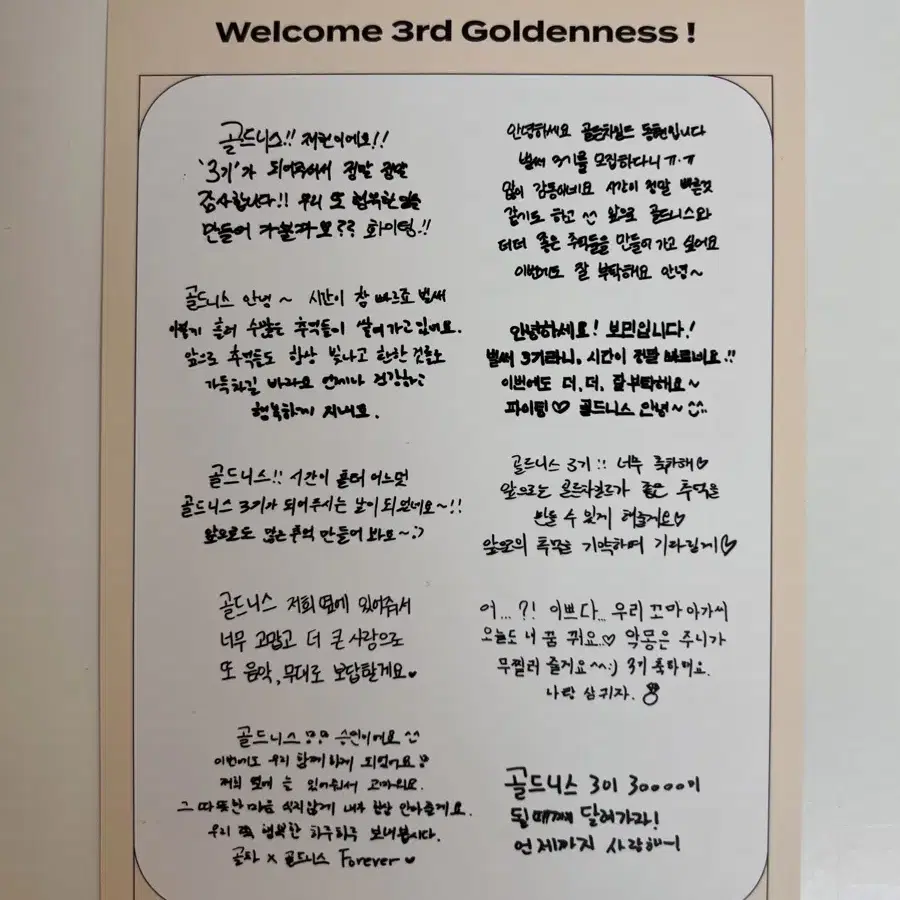 Welcome 3rd Goldenness !
골드니스!! 재현이에요!!
'3기'가 되어주셔서 정말 정말
감사합니다!! 우리 또 행복한
만들어 가볼까요?? 화이팅!!
골드니스 안녕~ 시간이 참 빠르죠 벌써
흘러 수많은 추억들이 쌓여가고 있어요.
앞으로 추억들도 항상 빛나고 환한 것들로
가득하길 바라요 언제나 건강하고
행복하게 지내요.
골드니스!! 시간이 흘러 어느덧
골드니스 3기가 되어주시는 날이 되었네요~!!
앞으로도 많은 추억 만들어 봐요~:)
골드니스 저희 옆에 있어줘서
너무 고맙고 더 큰 사랑으로
또 음악, 무대로 보답할게요♥
골드니스 승민이에요
이번에도 우리 함께하게 되었어요
저희 옆에 늘 있어줘서 고마워요.
그 따뜻한 마음 식지않게 내가 항상 안아줄게요.
우리 꼭 행복한 하루하루 보내봅시다.
골차 x 골드니스 Forever ♥
안녕하세요 골든차일드 동현입니다
벌써 3기를 모집하다니 ㅠ.ㅠ
많이 감동이네요 시간이 정말 빠른것
같기도 하고 앞으로 골드니스와
더더 좋은 추억들을 만들어 가고 싶어요
이번에도 잘 부탁해요 안녕~
안녕하세요! 보민입니다!
벌써 3기라니, 시간이 정말 빠르네요!!
이번에도 더, 더, 잘부탁해요~
파이팅♡ 골드니스 안녕~
골드니스 3기!! 너무 축하해♡
앞으로는 골든차일드가 좋은 추억을
만들 수 있게 해줄게요♡
앞으로의 기약하며 기다릴게♡
어...?! 이쁘다... 우리 꼬마 아가씨
오늘도 내 꿈 꿔요..♡ 악몽은 주니가
무찔러 줄게요^^:) 3기 축하해요.
나랑 삼귀자.
골드니스 3이 30000이
될때까지 달려가자!
언제까지 사랑해~